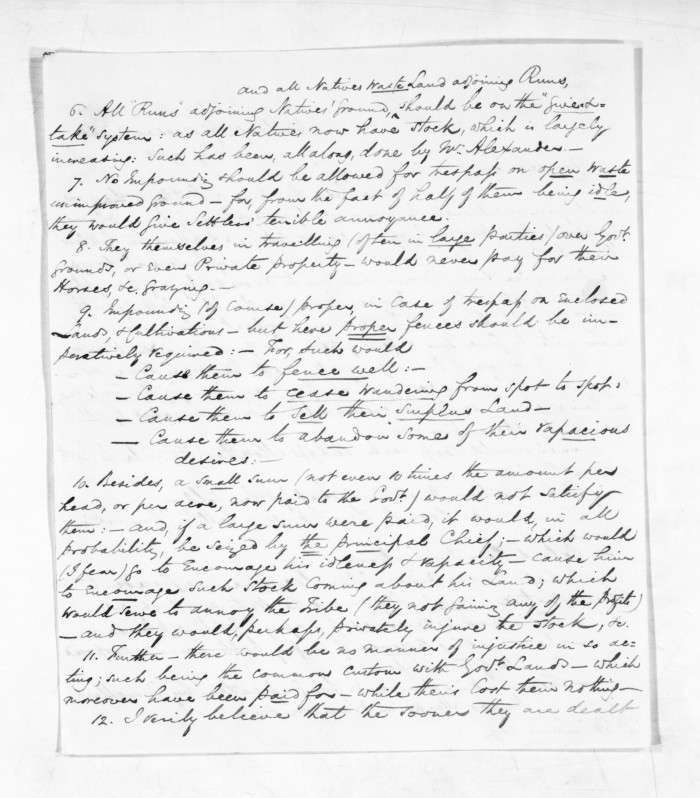 and all Natives Waste Land adjoining Runs,
6. All "Runs" adjoining Natives' Ground, ^ should be on the "Give &
take" System: as all Natives now have Stock, which is largely
increasing: Such has been, all along, done by Mr. Alexander. —
7. No Impoundg should be allowed for trespass on open Waste
unimproved Ground — for, from the fact of half of them being idle,
they would give Settlers terrible annoyance.
8. They themselves in travelling (often in large parties) over Govt.
Grounds, or even Private property — would never pay for their
Horses, &c. grazing. —
9. Impoundg (of course) proper, in Case of trespass on Enclosed
Lands, & Cultivations — but here proper fences should be im-
peratively required: — For, Such would
— Cause them to fence well: —
— Cause them to cease wandering from spot to spot:
— Cause them to Sell their Surplus Land —
— Cause them to abandon some of their rapacious
desires: —
10. Besides, a small sum (not even 10 times the amount per
head, or per acre, now paid to the Govt.) would not satisfy
them: — and, if a large sum were paid, it would, in all
probability, be seized by the principal Chief; — which would
(I fear) go to Encourage his idleness & rapacity — cause him
to Encourage such Stock coming about his Land; which
would serve to annoy the Tribe (they not gaining any of the profits)
— and they would, perhaps, privately injure the Stock, &c.
11. Further — there would be no manner of injustice in so ac-
ting; such being the common custom with Govt. Lands — which
moreover have been paid for — while theirs Cost them nothing —
12. I verily believe that the sooner they are dealt